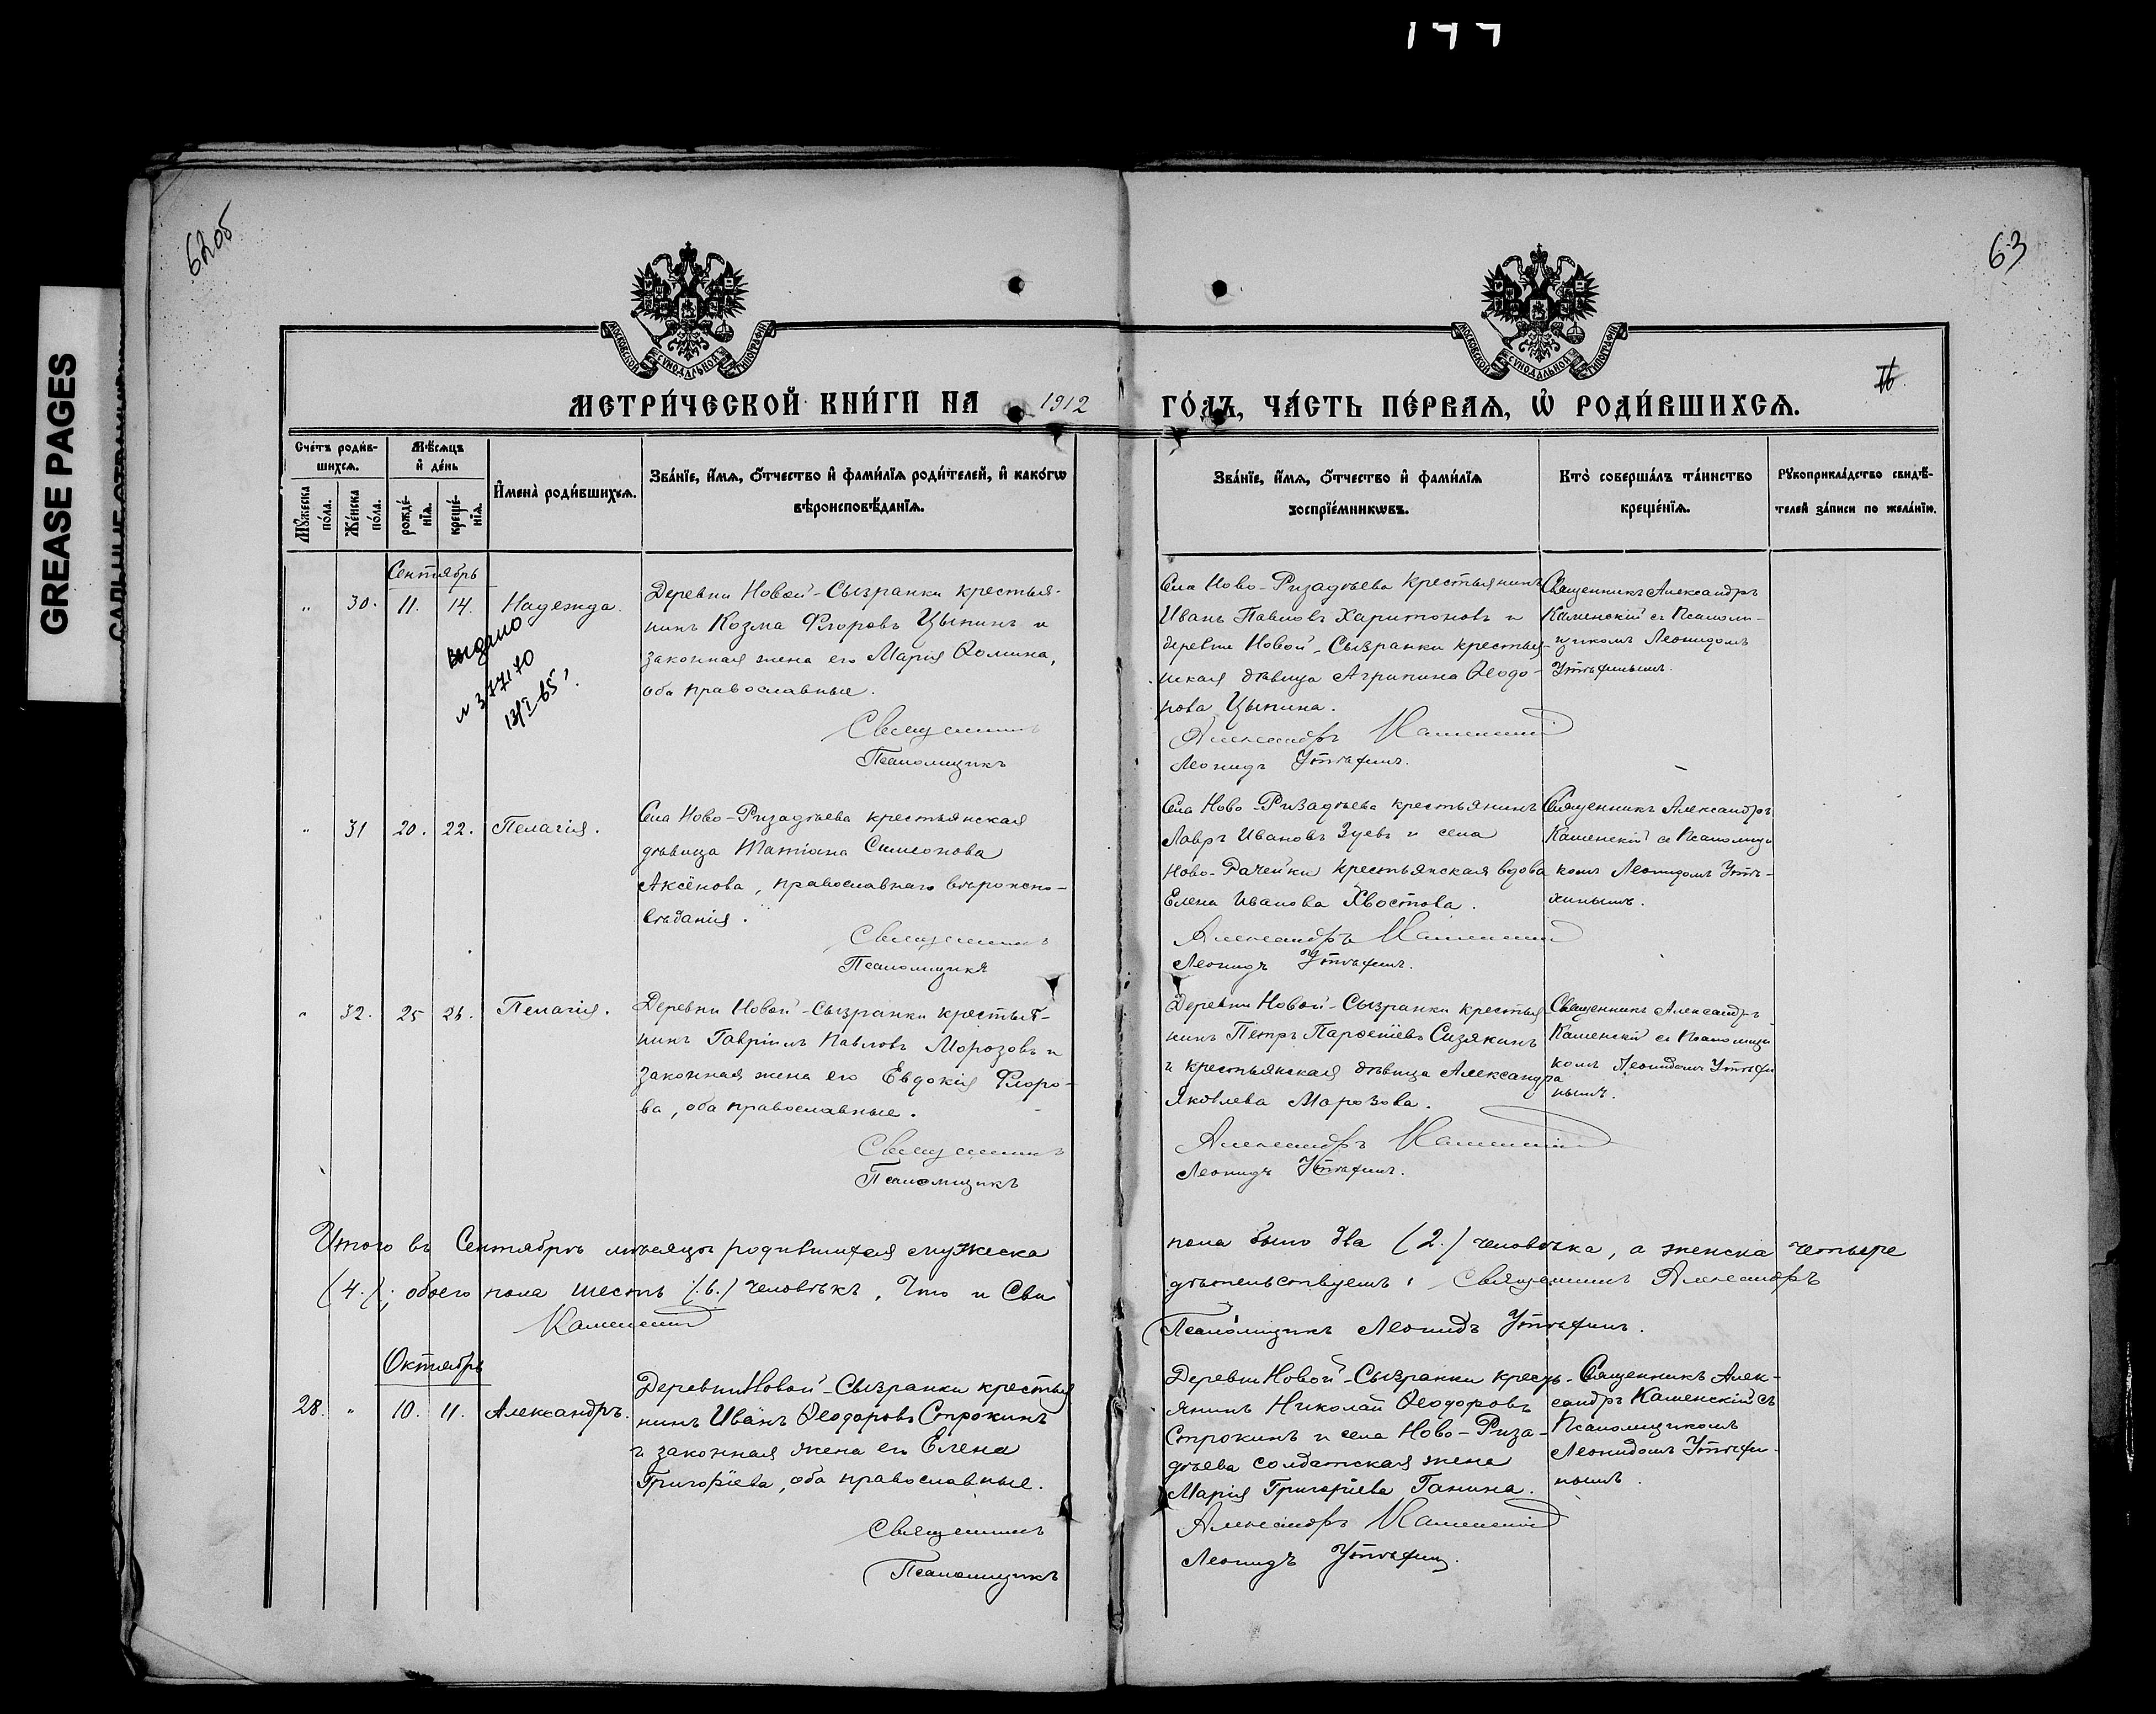 144
62об
63
GREASE PAGES
МОСКОВСКОЙ СУНОДАЛЬНОЙ ТИПОГРАФІИ
МОСКОВСКОЙ СУНОДАЛЬНОЙ ТИПОГРАФІИ
МЕТРИ́ЧЕСКОЙ КНИ́ГИ НА 1912 ГО́ДЪ, ЧА́СТЬ ПЕ́РВАЯ, Ѡ РОДИ́ВШИХСЯ.
Сче́тъ роди́в-
шихся.
Мѣ́сяцъ
и де́нь
Мꙋ́жеска по́ла.
Же́нска по́ла.
рожде́-
нїя.
креще́-
нїя.
Имена̀ роди́вшихся.
Зва́нїе, и́мя, о́тчество и фами́лїя роди́телей, и како́гѡ
вѣроисповѣ́данїя.
Зва́нїе, и́мя, о́тчество и фами́лїя
воспрїе́мникѡвъ.
Кто̀ соверша́лъ та́инство
креще́нїя.
Рꙋкоприкла́дство свидѣ́-
телей за́писи по жела́нїю.
Сентябрь
" 30. 11. 14. Надежда.
выдано
№ 377170
13/I-65,
Деревни Новой-Сызранки крестья-
нинъ Козма Флоровъ Цыпинъ и
законная жена его Марія Ѳомина,
оба православные.
Священникъ
Псаломщикъ
Села Ново-Ризадѣева крестьянинъ
Иванъ Павловъ Харитоновъ и
деревни Новой-Сызранки крестья-
нская дѣвица Агрипина Ѳеодо-
рова Цыпина.
Александръ Каменскій
Леонидъ Утѣхинъ.
Священникъ Александръ
Каменскій съ Псалом-
щикомъ Леонидомъ
Утѣхинымъ.
" 31 20. 22. Пелагія.
Села Ново-Ризадѣева крестьянская
дѣвица Татіана Симеонова
Аксёнова, православнаго вѣроиспо-
вѣданія.
Священникъ
Псаломщикъ
Села Ново-Ризадѣева крестьянинъ
Лавръ Ивановъ Зуевъ и села
Ново-Рачейки крестьянская вдова
Елена Иванова Хвостова.
Александръ Каменскій
Леонидъ Утѣхинъ.
Священникъ Александръ
Каменскій съ Псаломщи
комъ Леонидомъ Утѣ-
хинымъ.
" 32. 25 26. Пелагія.
Деревни Новой-Сызранки крестья-
нинъ Гавріилъ Павловъ Морозовъ и
законная жена его Евдокія Флоро-
ва, оба православные.
Священникъ
Псаломщикъ
Деревни Новой-Сызранки крестья-
нинъ Петръ Сизякинъ
и крестьянская дѣвица Александра
Яковлева Морозова.
Александръ Каменскій
Леонидъ Утѣхинъ.
Священникъ Александръ
Каменскій съ Псаломщи
комъ Леонидомъ Утѣхи
нымъ.
Итого въ Сентябрѣ мѣсяцѣ родившихся мужеска пола было два (2.) человѣка, а женска четыре
(4.); обоего пола шесть (.6.) человѣкъ, Что и Сви дѣтельствуемъ: Священникъ Александръ
Каменскій Псаломщикъ Леонидъ Утѣхинъ.
Октябрь
28. " 10. 11. Александръ.
Деревни Новой-Сызранки крестья
нинъ Иванъ Ѳеодоровъ Строкинъ
и законная жена его Елена
Григоріева, оба православные.
Священникъ
Псаломщикъ
Деревни Новой-Сызранки кресть-
янинъ Николай Ѳеодоровъ
Строкинъ и села Ново-Риза-
дѣева солдатская жена
Марія Григоріева Ганина.
Александръ Каменскій
Леонидъ Утѣхинъ.
Священникъ Алек-
сандръ Каменскій съ
Псаломщикомъ
Леонидомъ Утѣхи-
нымъ.